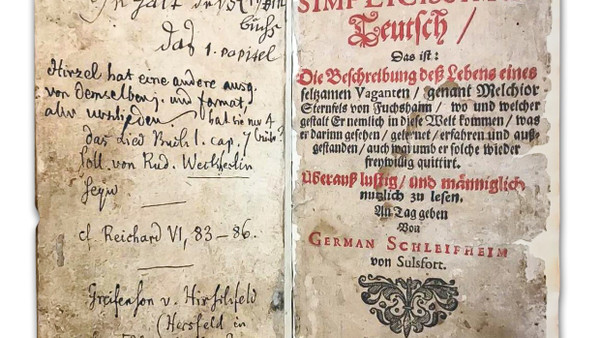 Inhalt des
Buchs
das 1. Capitel
Hirzel hat eine andere Ausg.
von demselben j. und format,
aber verschieden
hat sie nur 4
das Lied Buch 1. cap. 7
soll von Rud. Weckherlin
seyn
cf. Reichard VI, 83–86.
Greifenson v. Hirschfeld
(Hersfeld in
Teutsch /
Das ist:
Die Beschreibung deß Lebens eines
seltzamen Vaganten / genant Melchior
Sternfels von Fuchshaim / wo und welcher
gestalt Er nemlich in diese Welt kommen / was
er darinn gesehen / gelernet / erfahren und auß-
gestanden / auch warumb er solche wieder
freywillig quittirt.
Uberauß lustig / und männiglich
nutzlich zu lesen.
An Tag geben
Von
GERMAN SCHLEIFHEIM
von Sulsfort.